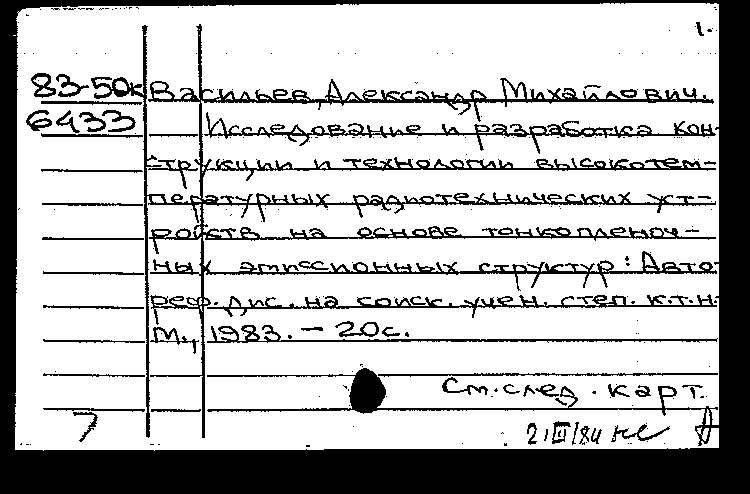 1.
83-50к Васильев, Александр Михайлович.
6433 Исследование и разработка кон-
струкции и технологии высокотем-
пературных радиотехнических уст-
ройств на основе тонкопленоч-
ных эмиссионных структур: Авто
реф. дис. на соиск. учен. степ. к.т.н.
М., 1983. – 20с.
См. след. карт.
7 2.III/84